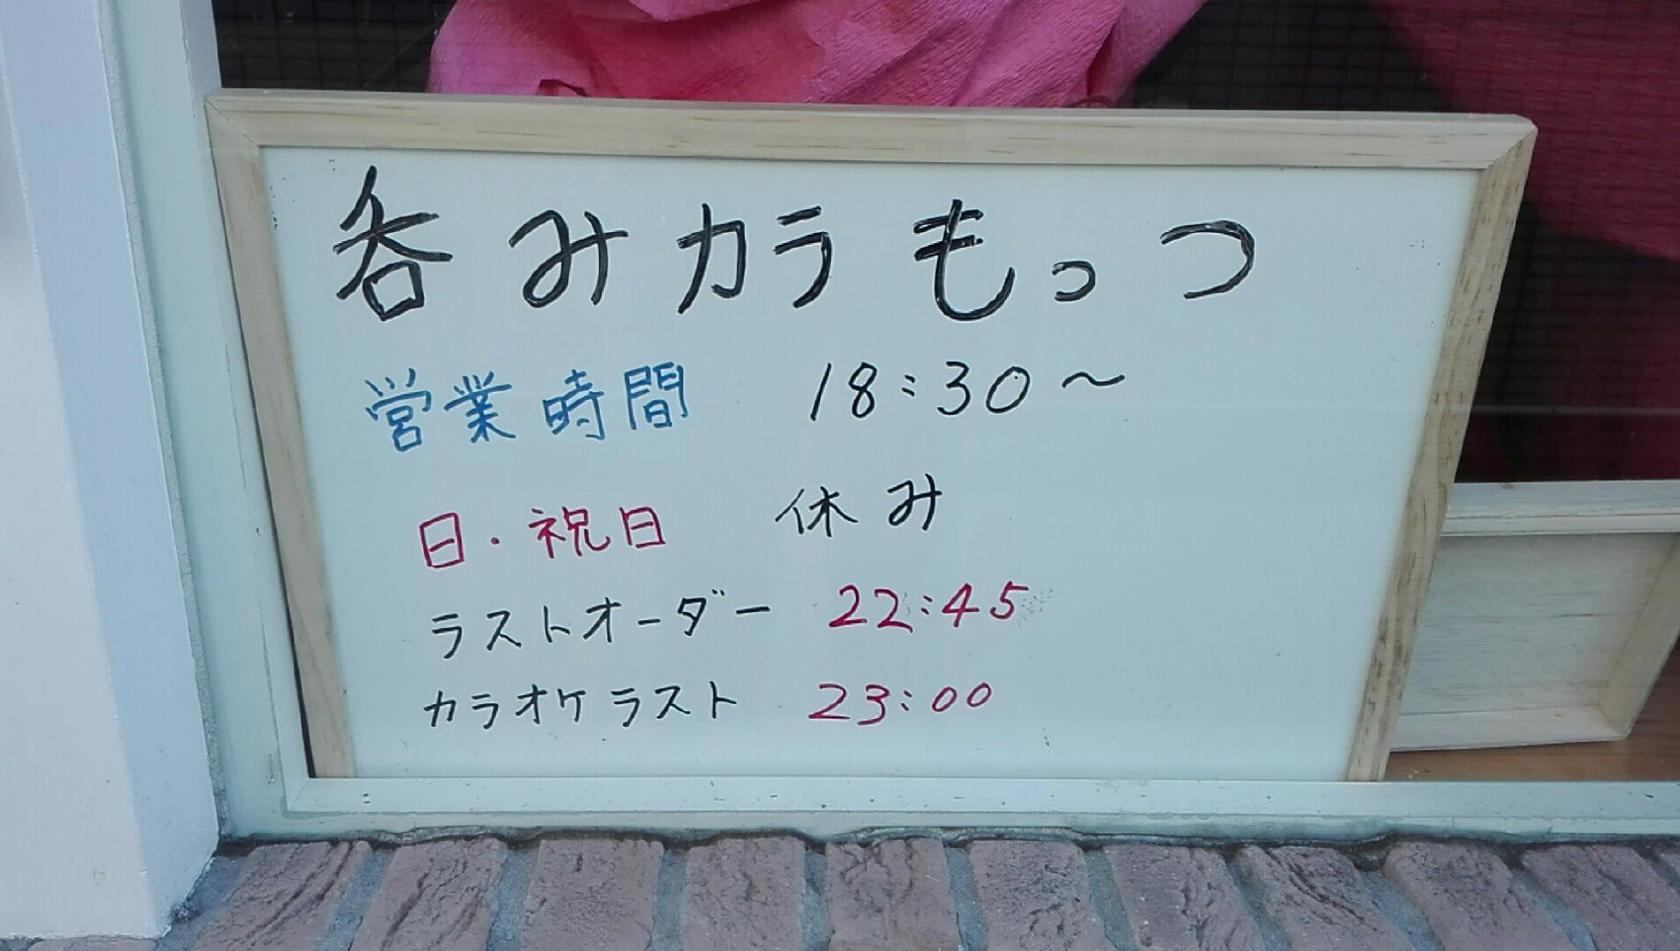 呑みカラもっつ
営業時間 18:30～
日・祝日 休み
ラストオーダー 22:45
カラオケラスト 23:00